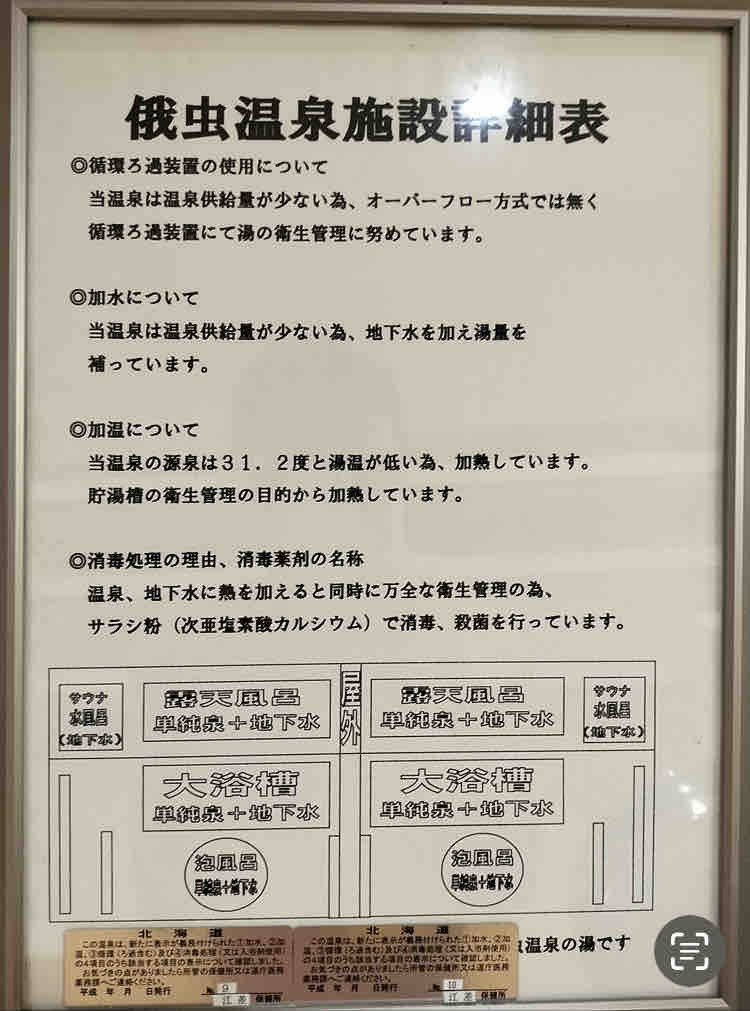 俄虫温泉施設詳細表
◎循環ろ過装置の使用について
当温泉は温泉供給量が少ない為、オーバーフロー方式では無く
循環ろ過装置にて湯の衛生管理に努めています。
◎加水について
当温泉は温泉供給量が少ない為、地下水を加え湯量を
補っています。
◎加温について
当温泉の源泉は31.2度と湯温が低い為、加熱しています。
貯湯槽の衛生管理の目的から加熱しています。
◎消毒処理の理由、消毒薬剤の名称
温泉、地下水に熱を加えると同時に万全な衛生管理の為、
サラシ粉(次亜塩素酸カルシウム)で消毒、殺菌を行っています。
サウナ
水風呂
(地下水)
露天風呂
単純泉+地下水
屋外
露天風呂
単純泉+地下水
サウナ
水風呂
(地下水)
大浴槽
単純泉+地下水
大浴槽
単純泉+地下水
泡風呂
単純泉+地下水
泡風呂
単純泉+地下水
虫温泉の湯です
北海道
この温泉は、新たに表示が義務付けられた①加水、②加
温、③循環(ろ過含む)及び④消毒処理(又は入浴剤使用)
の4項目のうち該当する項目の表示について確認しました。
お気づきの点がありましたら所管の保健所又は道庁医務
薬務課へご連絡ください。
平成 年 月 日発行 No. 9
江差 保健所
北海道
この温泉は、新たに表示が義務付けられた①加水、②加
温、③循環(ろ過含む)及び④消毒処理(又は入浴剤使用)
の4項目のうち該当する項目の表示について確認しました。
お気づきの点がありましたら所管の保健所又は道庁医務
薬務課へご連絡ください。
平成 年 月 日発行 No. 10
江差 保健所